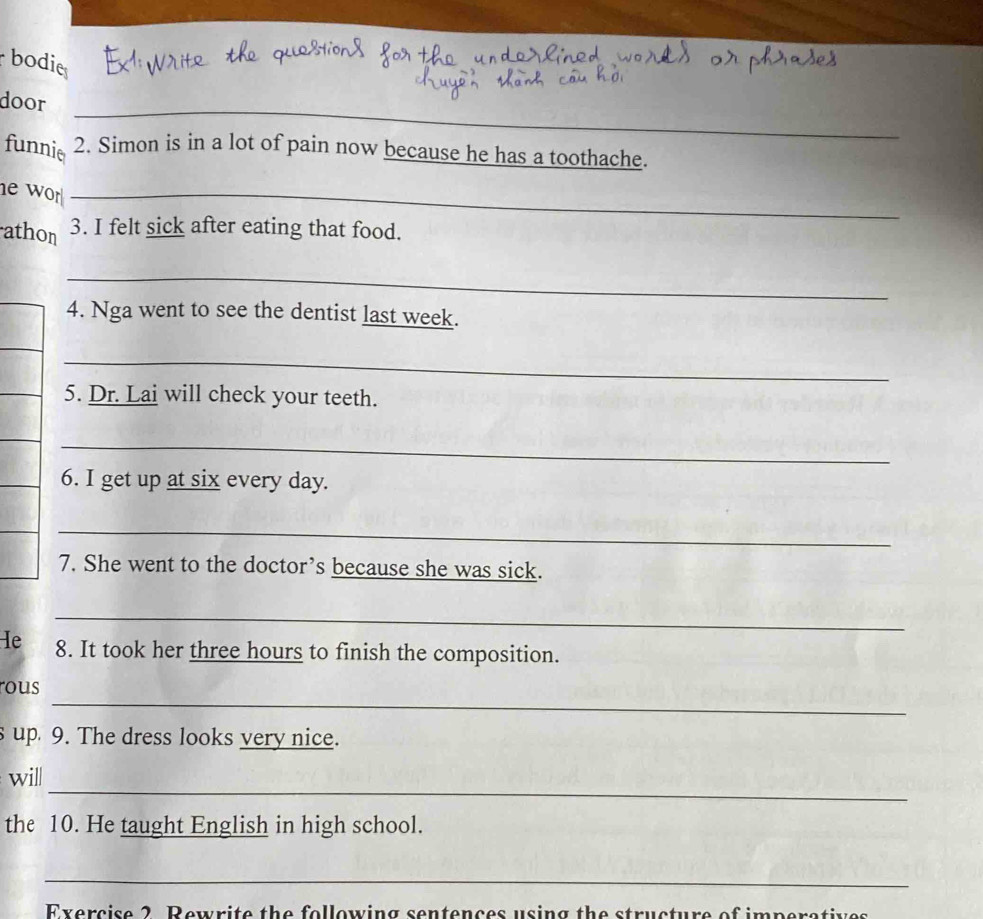 r bodie
Ex1: Write the questions for the underlined words or phrases
chuyển thành câu hỏi
door
funnie
2. Simon is in a lot of pain now because he has a toothache.
he wor
rathon
3. I felt sick after eating that food.
4. Nga went to see the dentist last week.
5. Dr. Lai will check your teeth.
6. I get up at six every day.
7. She went to the doctor's because she was sick.
He
8. It took her three hours to finish the composition.
rous
s up.
9. The dress looks very nice.
will
the
10. He taught English in high school.
Exercise 2. Rewrite the following sentences using the structure of imperatives